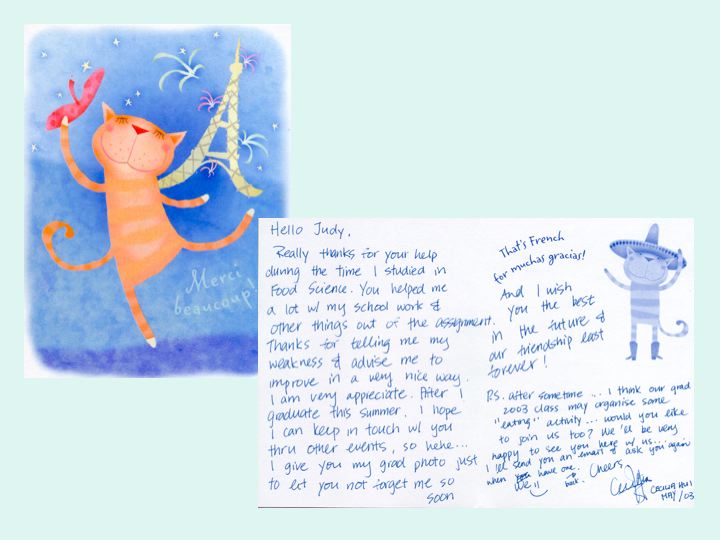 Merci
beaucoup!
Hello Judy,
Really thanks for your help
during the time I studied in
Food Science. You helped me
a lot w/ my school work &
other things out of the assignment.
Thanks for telling me my
weakness & advise me to
improve in a very nice way.
I am very appreciate. After I
graduate this summer. I hope
I can keep in touch w/ you
thru other events, so hehe...
I give you my grad photo just
to let you not forget me so
soon
That's French
for muchas gracias!
And I wish
you the best
in the future &
our friendship last
forever!
P.S. after sometime... I think our grad
2003 class may organise some
"eating" activity... would you like
to join us too? We'll be very
happy to see you here w/ us...
I'll send you an email & ask you again
when we have one.
Cheers,
CECILIA HUI
MAY/03